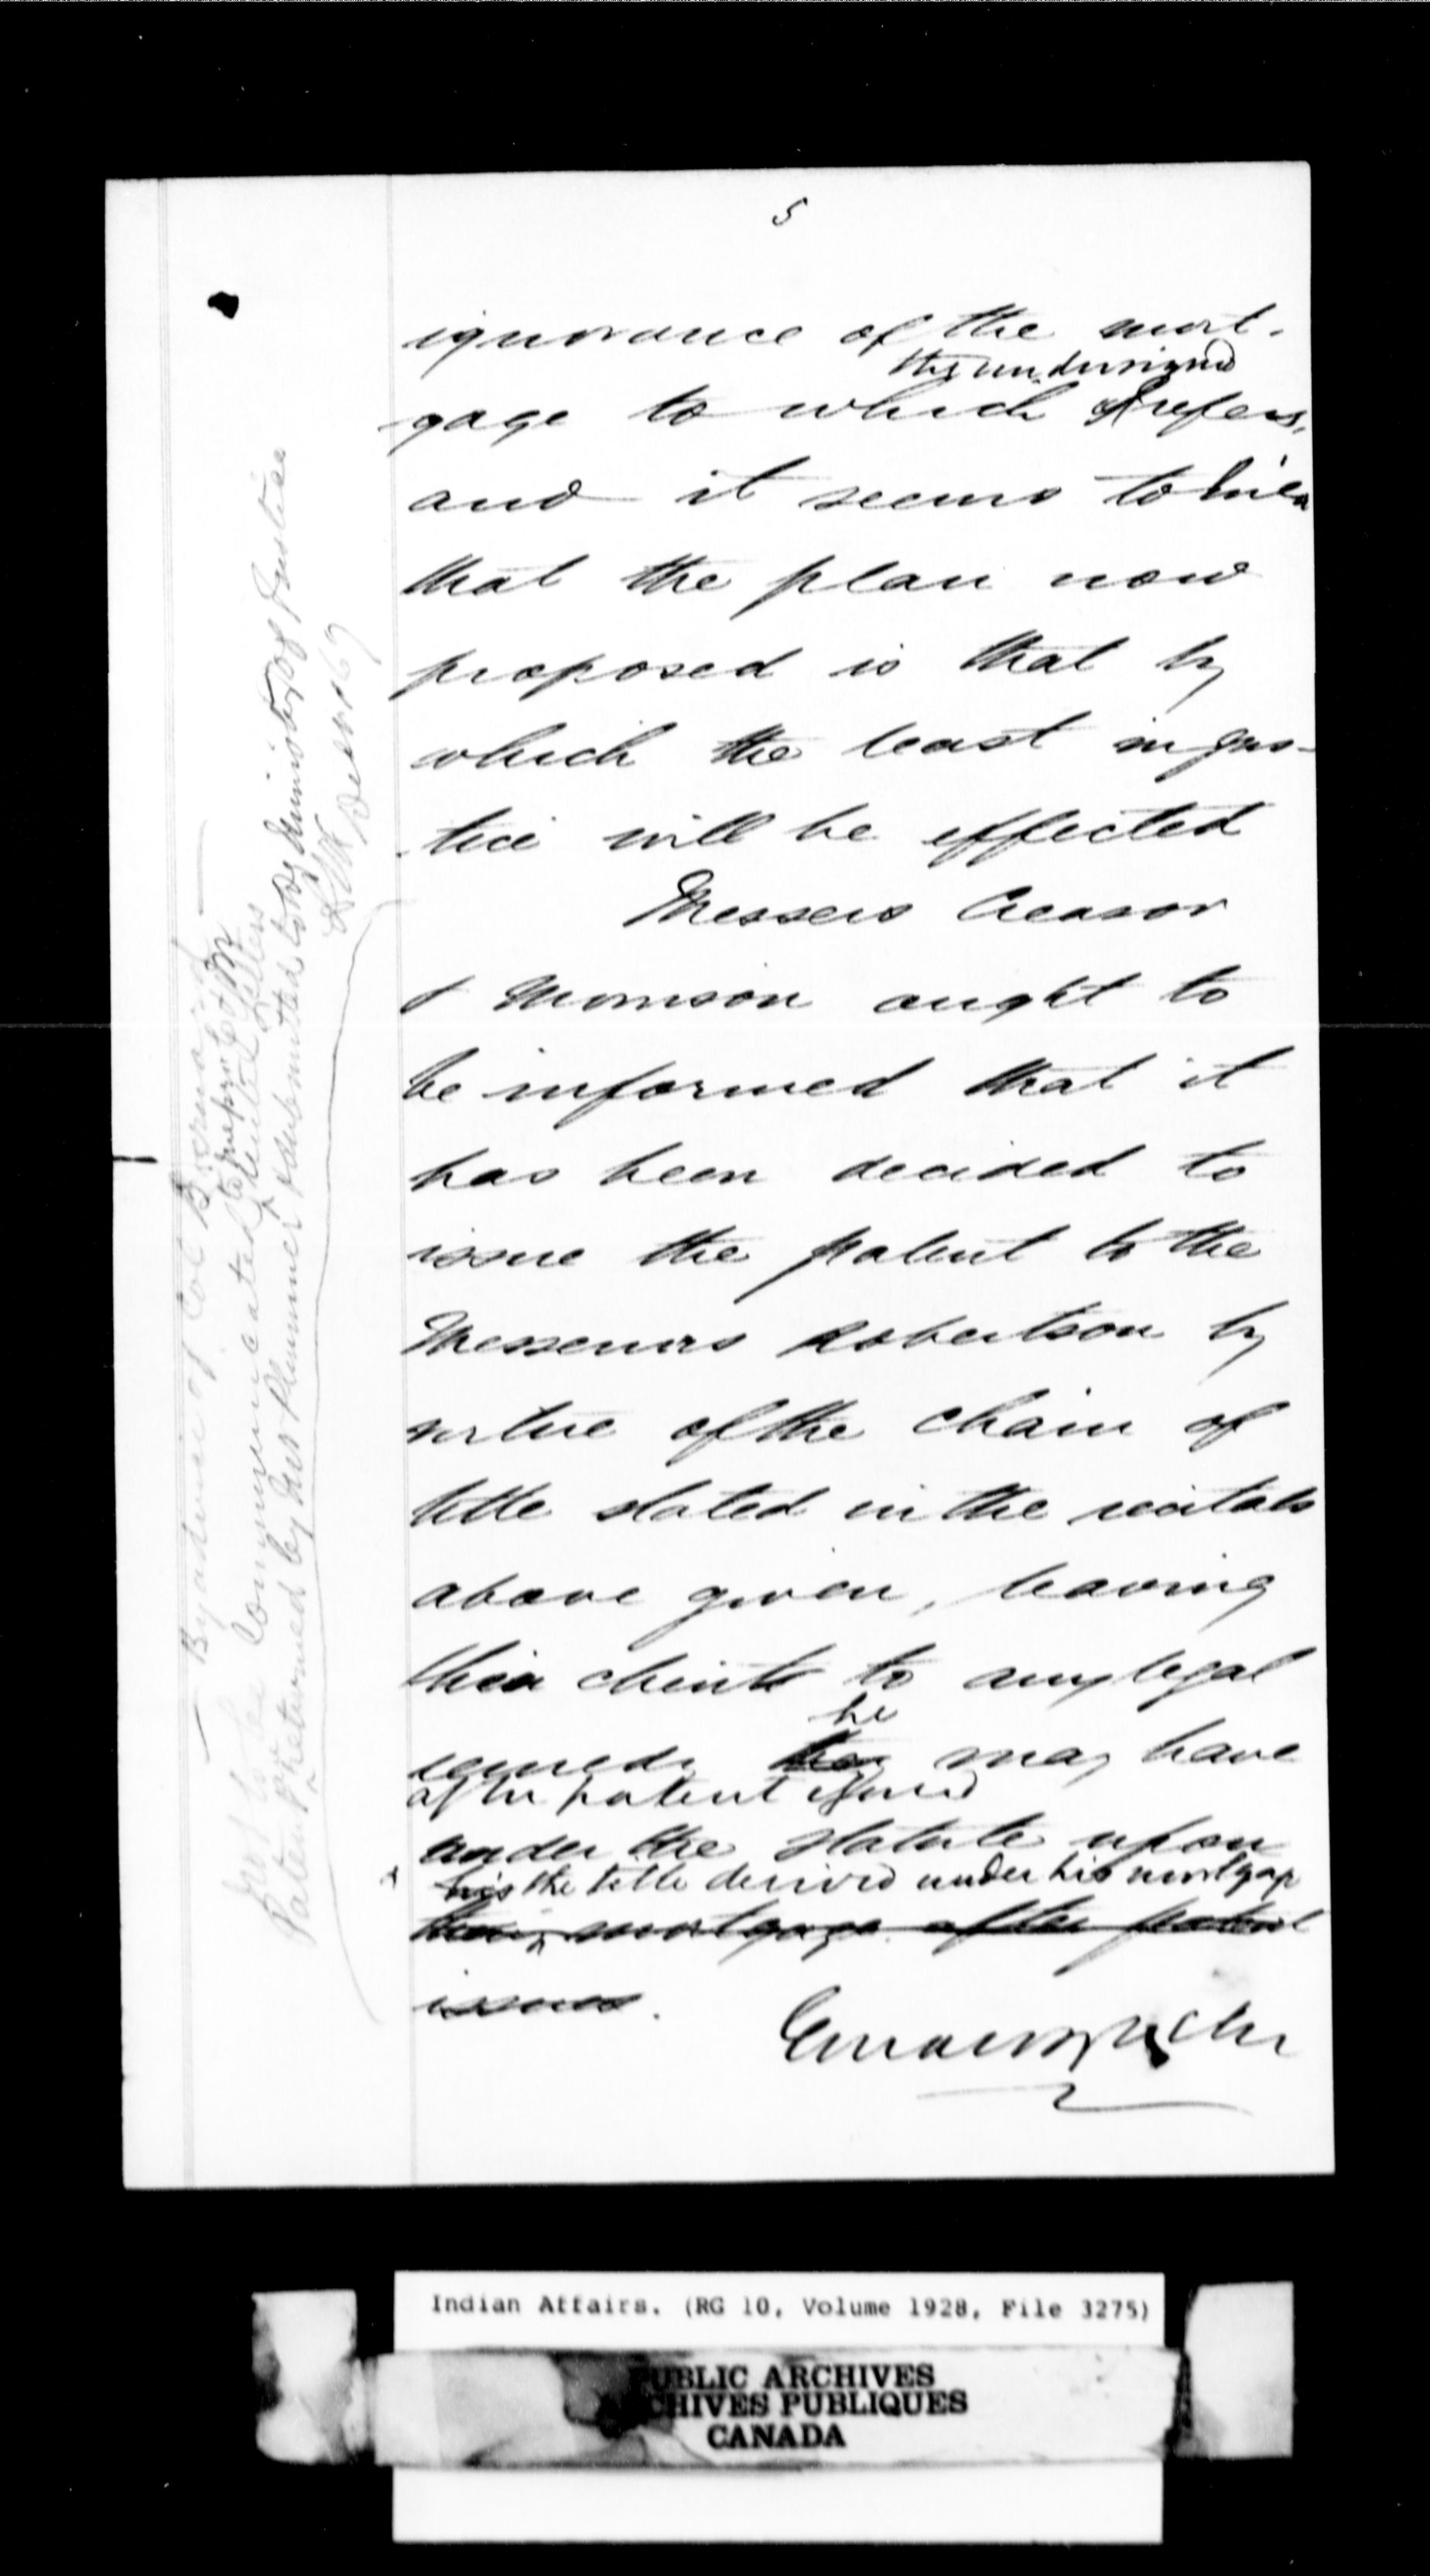 5
ignorance of the mort-
the undersigned
gage to which refers,
and it seems to him
that the plan now
proposed is that by
which the least injus-
tice will be effected
Messers Creasor
& Morrison ought to
be informed that it
has been decided to
issue the patent to the
Messeurs Robertson by
virtue of the chain of
title stated in the recitals
above given, leaving
their client to any legal
he
remedy may have
after patent issued
under the statute upon
his the title derived under his mortgage
their mortgage after patent
issues.
By advice of Col
Not to be Communicated to prepare
Patent Letters
returned by Mrs Plummer & submitted to Dy Minister of Justice
Indian Affairs. (RG 10, Volume 1928, File 3275)
PUBLIC ARCHIVES
ARCHIVES PUBLIQUES
CANADA